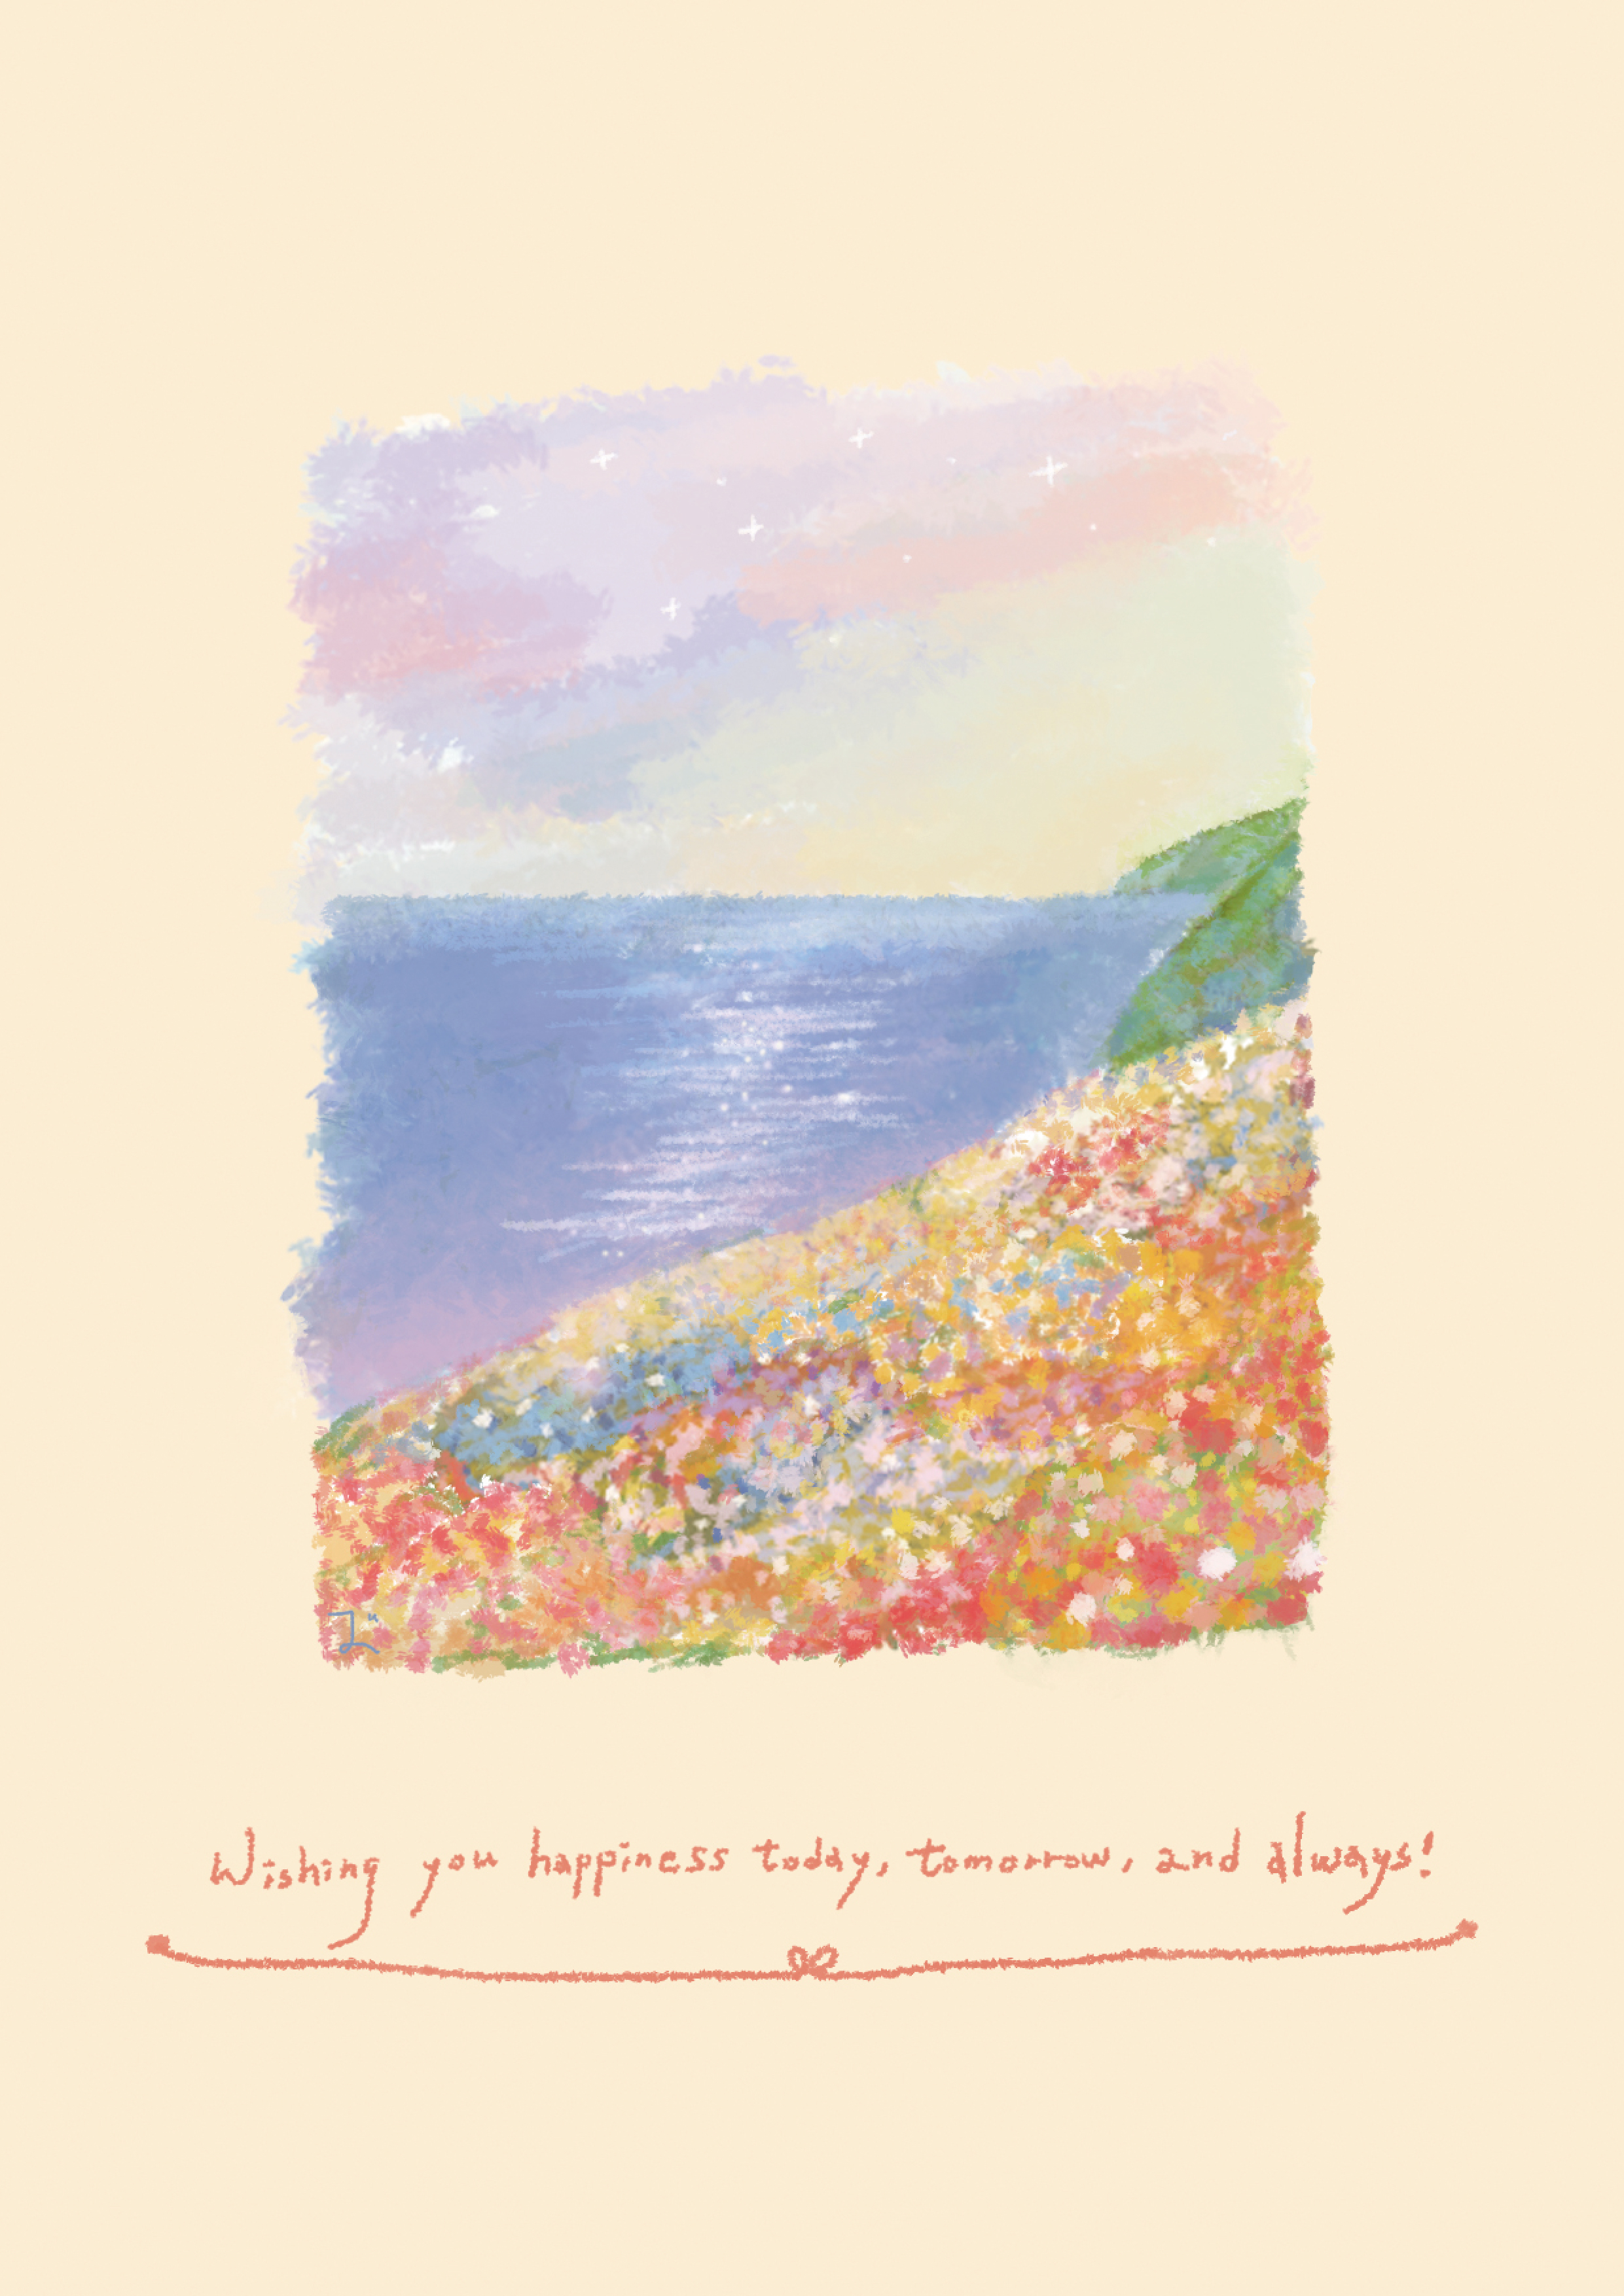 Wishing you happiness today, tomorrow, and always!